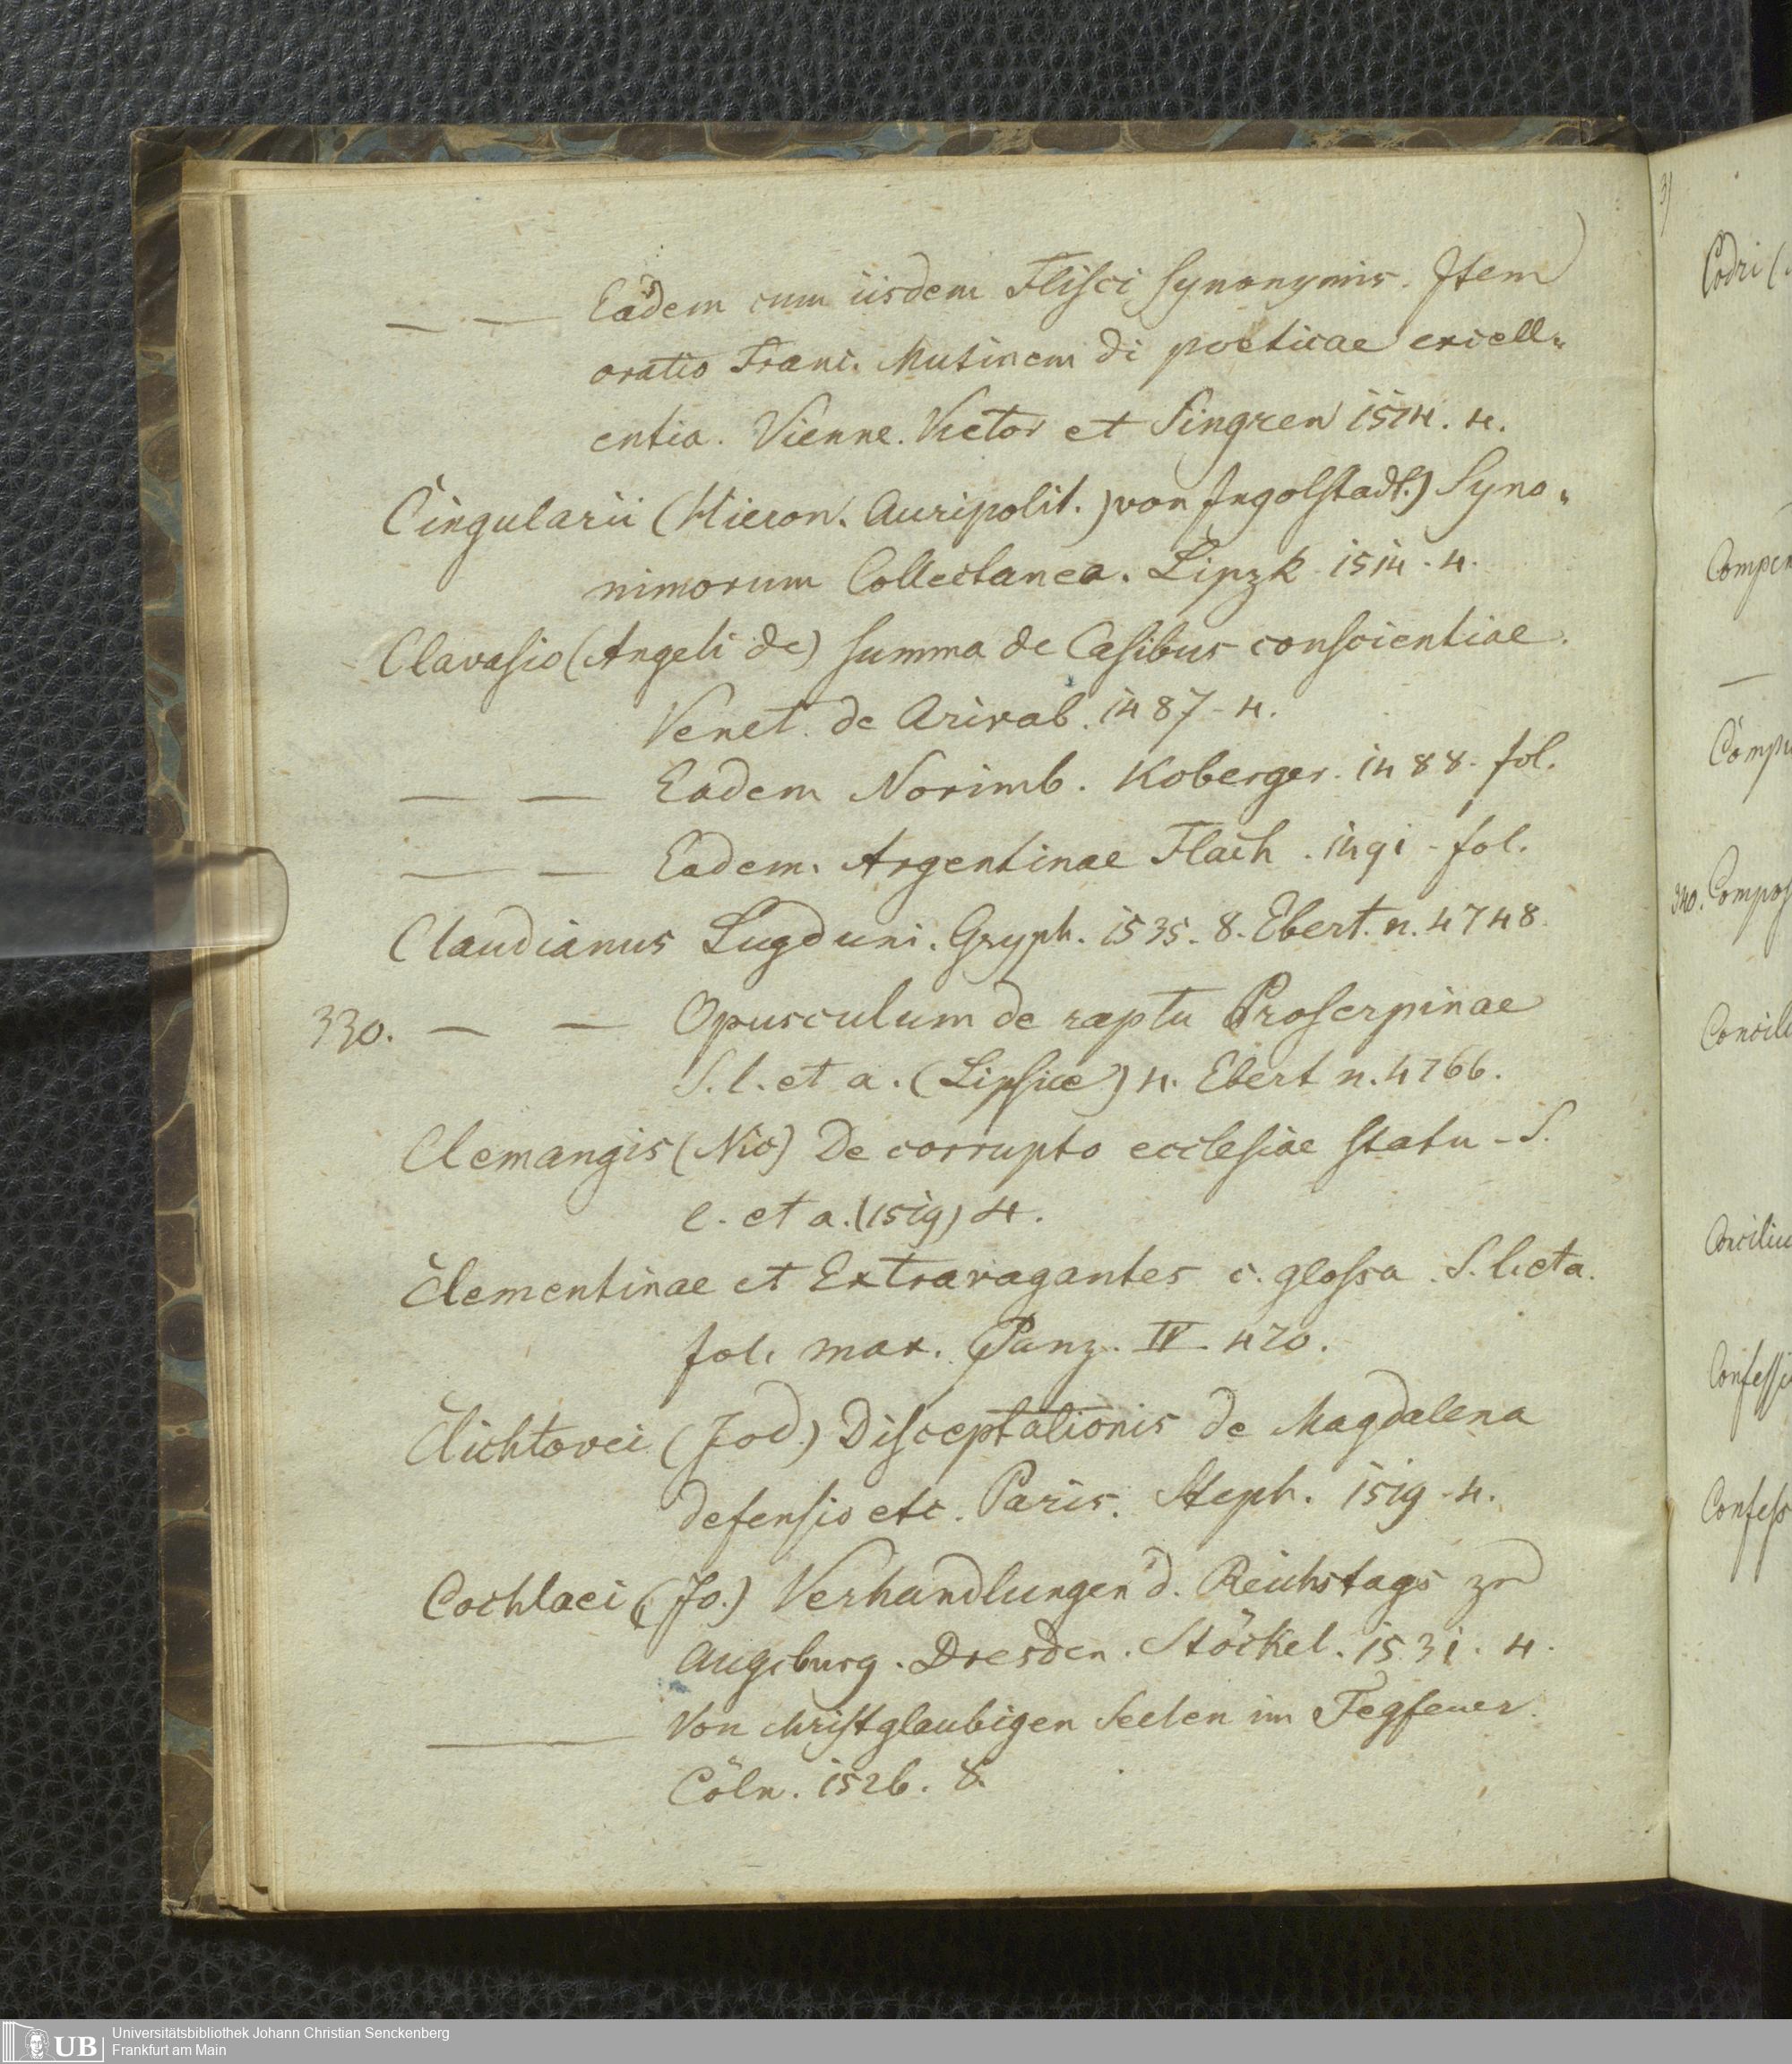 — — Eadem cum iisdem Flisci synonymis. Item
oratio Franc. Mutinem di poeticae excell-
entia. Vienne. Vietor et Singren 1514. 4.
Cingularii (Hieron. Auripolit.) von Ingolstadt.) Syno-
nimorum Collectanea. Lipzk 1514. 4.
Clavasio (Angeli de) Summa de Casibus conscientiae.
Venet. de Arivab. 1487 - 4.
— — Eadem Norimb. Koberger. 1488. fol.
— — Eadem. Argentinae Flach. 1491 - fol.
Claudianus Lugduni. Gryph. 1535. 8. Ebert. n. 4748.
330. — — Opusculum de raptu Proserpinae
S. l. et a. (Lipsiae) 4. Ebert n. 4766.
Clemangis (Nic) De corrupto ecclesiae statu - S.
l. et a. (1519) 4.
Clementinae et Extravagantes c. glossa. S. l. et a.
fol. max. Panz. IV. 470.
Clichtovei (Jod.) Disceptationis de Magdalena
defensio etc. Paris. Steph. 1519 - 4.
Cochlaei (Jo.) Verhandlungen d. Reichstags zu
Augsburg. Dresden. Stöckel. 1531. 4.
— Von christglaubigen Seelen im Fegfeuer.
Cöln. 1526. 8.
Codri (
—
340.
UB Universitätsbibliothek Johann Christian Senckenberg
Frankfurt am Main